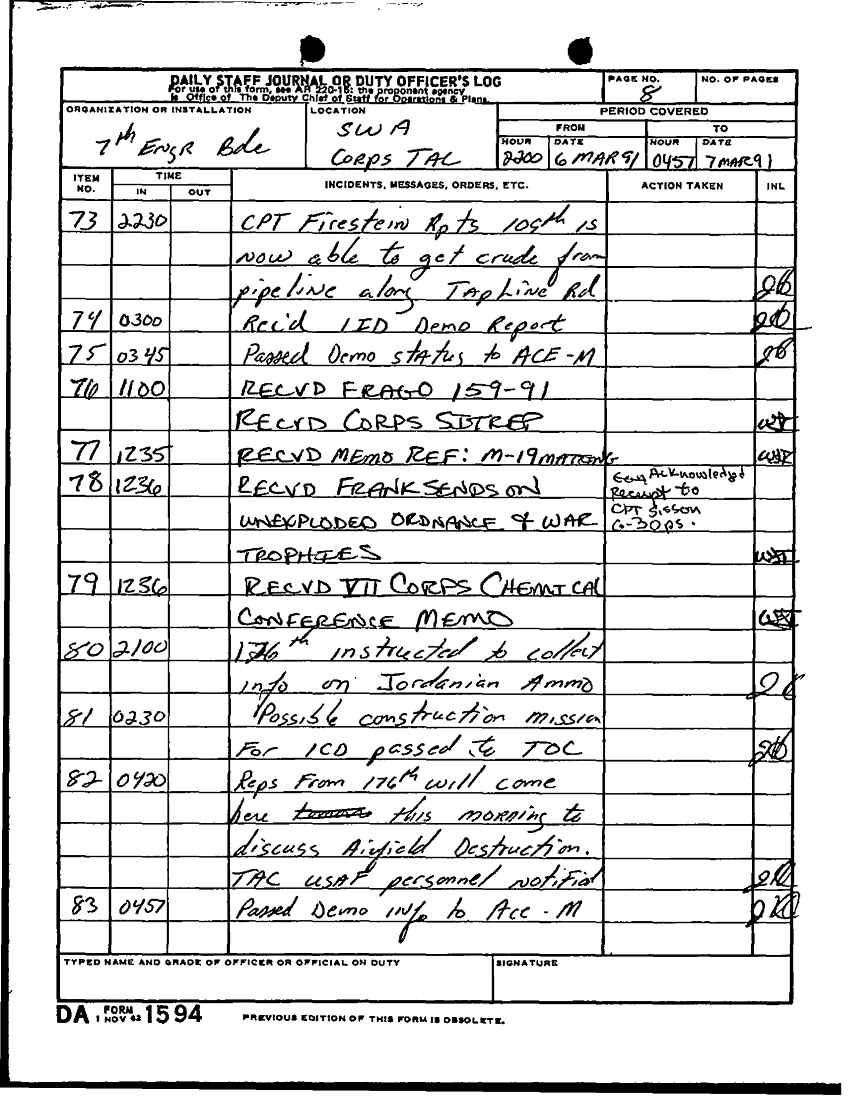 DAILY STAFF JOURNAL OR DUTY OFFICER'S LOG
For use of this form, see AR 220-15; the proponent agency
is Office of The Deputy Chief of Staff for Operations & Plans.
PAGE NO.
8
NO. OF PAGES
ORGANIZATION OR INSTALLATION
7th Engr Bde
LOCATION
SWA
Corps TAC
PERIOD COVERED
FROM
TO
HOUR DATE HOUR DATE
2200 6 MAR 91 0457 7 MAR 91
ITEM NO. TIME INCIDENTS, MESSAGES, ORDERS, ETC. ACTION TAKEN INL
IN OUT
73 2230 CPT Firestein Rpts 109th is
now able to get crude from
pipeline along TapLine Rd
74 0300 Rec'd 1ID Demo Report
75 0345 Passed Demo status to ACE-M
76 1100 RECVD FRAGO 159-91
RECVD CORPS SITREP
77 1235 RECVD MEMO REF: M-19 MATTING
78 1236 RECVD FRANK SENDS ON
UNEXPLODED ORDNANCE & WAR
TROPHIES
Acknowledged
Receipt to
CPT Sisson
G-3 OPS.
79 1236 RECVD VII CORPS CHEMICAL
CONFERENCE MEMO
80 2100 176th instructed to collect
info on Jordanian Ammo
81 0230 Possible construction mission
For 1CD passed to TOC
82 0420 Reps From 176th will come
here this morning to
discuss Airfield Destruction.
TAC USAF personnel notified
83 0457 Passed Demo info to Ace-M
TYPED NAME AND GRADE OF OFFICER OR OFFICIAL ON DUTY
SIGNATURE
DA FORM 1 NOV 62 1594
PREVIOUS EDITION OF THIS FORM IS OBSOLETE.